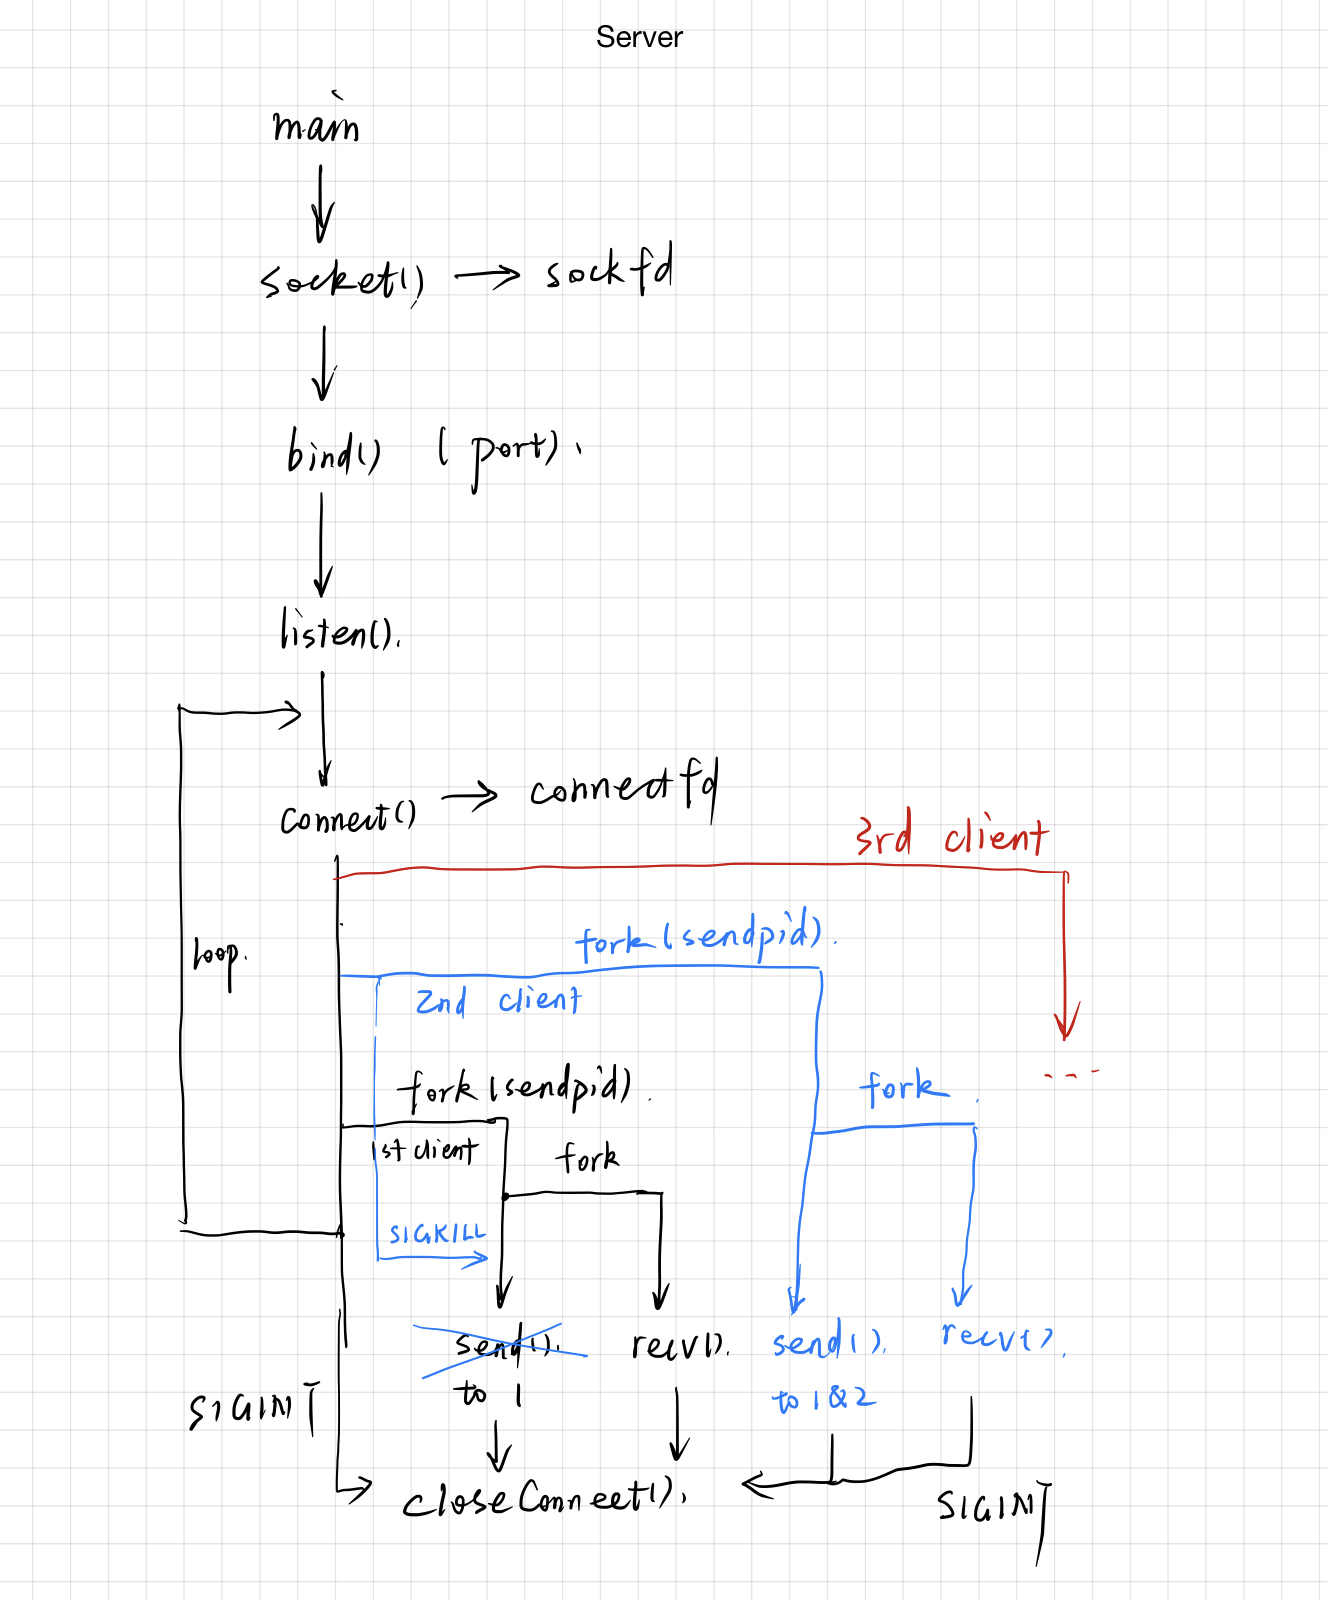 Server
main
socket() → sockfd
bind() (port).
listen().
connect() → connectfd
3rd client
fork(sendpid).
loop.
2nd client
fork(sendpid).
fork.
1st client
fork
SIGKILL
send(). recv(). send(). recv().
to 1 to 1&2
SIGINT
closeConnect().
SIGINT
...